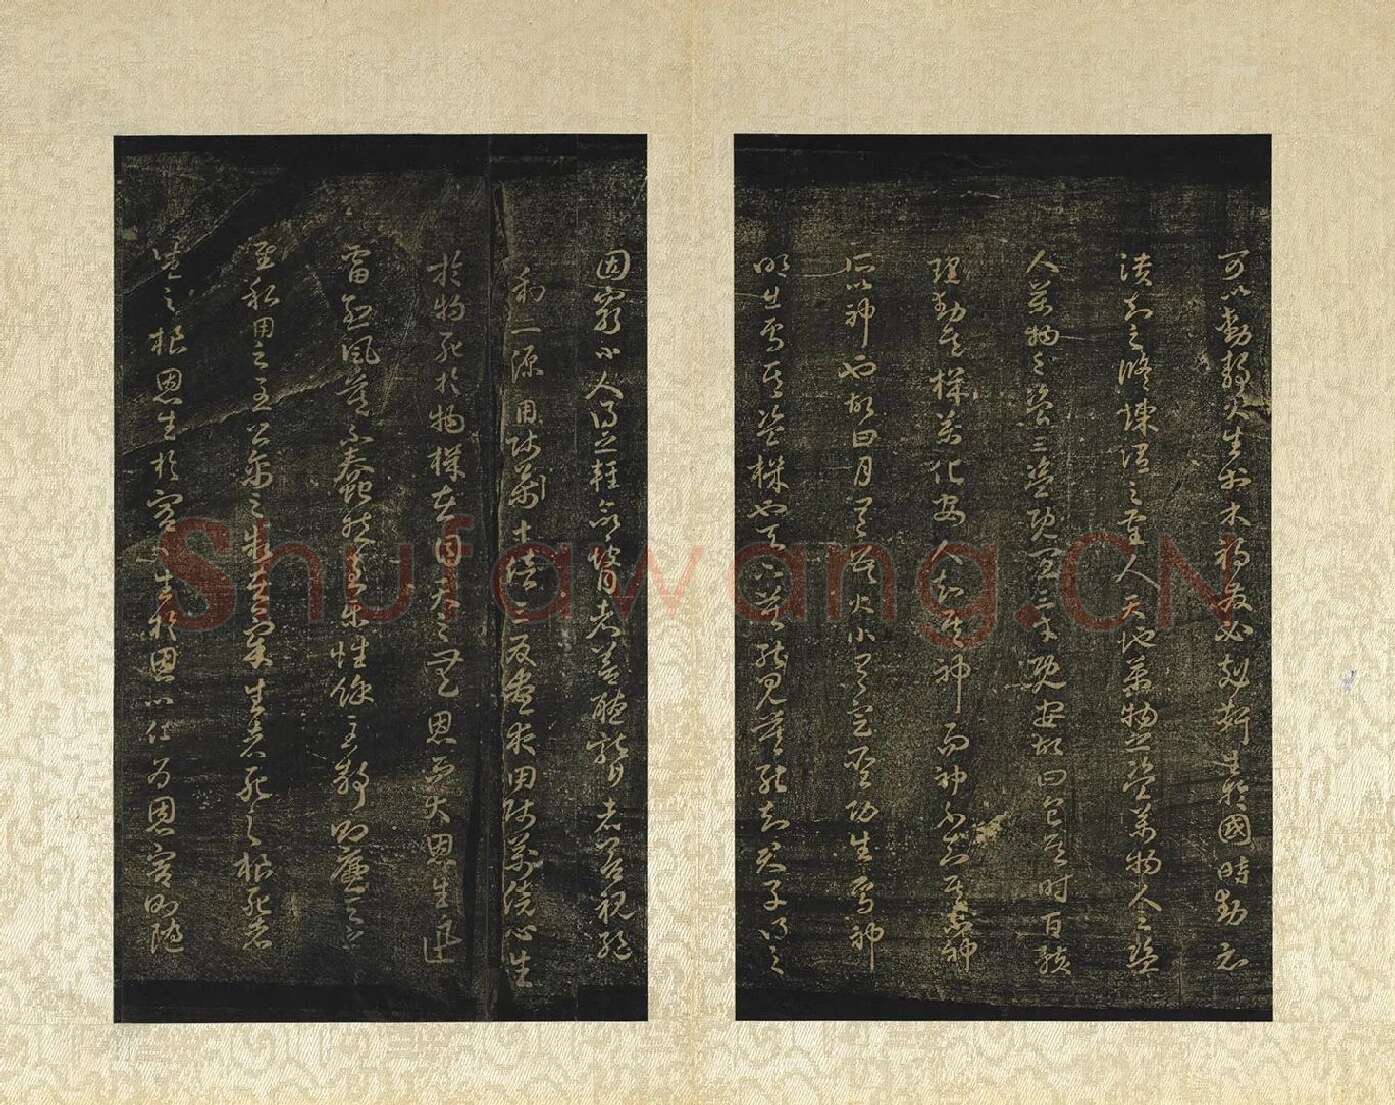 可以動靜火生於木禍發必剋奸生於國時動必
潰知之修煉謂之聖人天地萬物之盜萬物人之盜
人萬物之盜三盜既宜三才既安故曰食其時百骸
理動其機萬化安人知其神而神不知其不神
所以神也故日月有數大小有定聖功生焉神
明出焉其盜機也天下莫能見莫能知君子得之
固窮小人得之輕命瞽者善聽聾者善視絕
利一源用師萬十倍三反晝夜用師萬倍心生
於物死於物機在目天之無恩而大恩生迅
雷烈風莫不蠢然至樂性餘至靜則廉天之
至私用之至公禽之制在氣生者死之根死者
生之根恩生於害害生於恩
Shufawang.CN